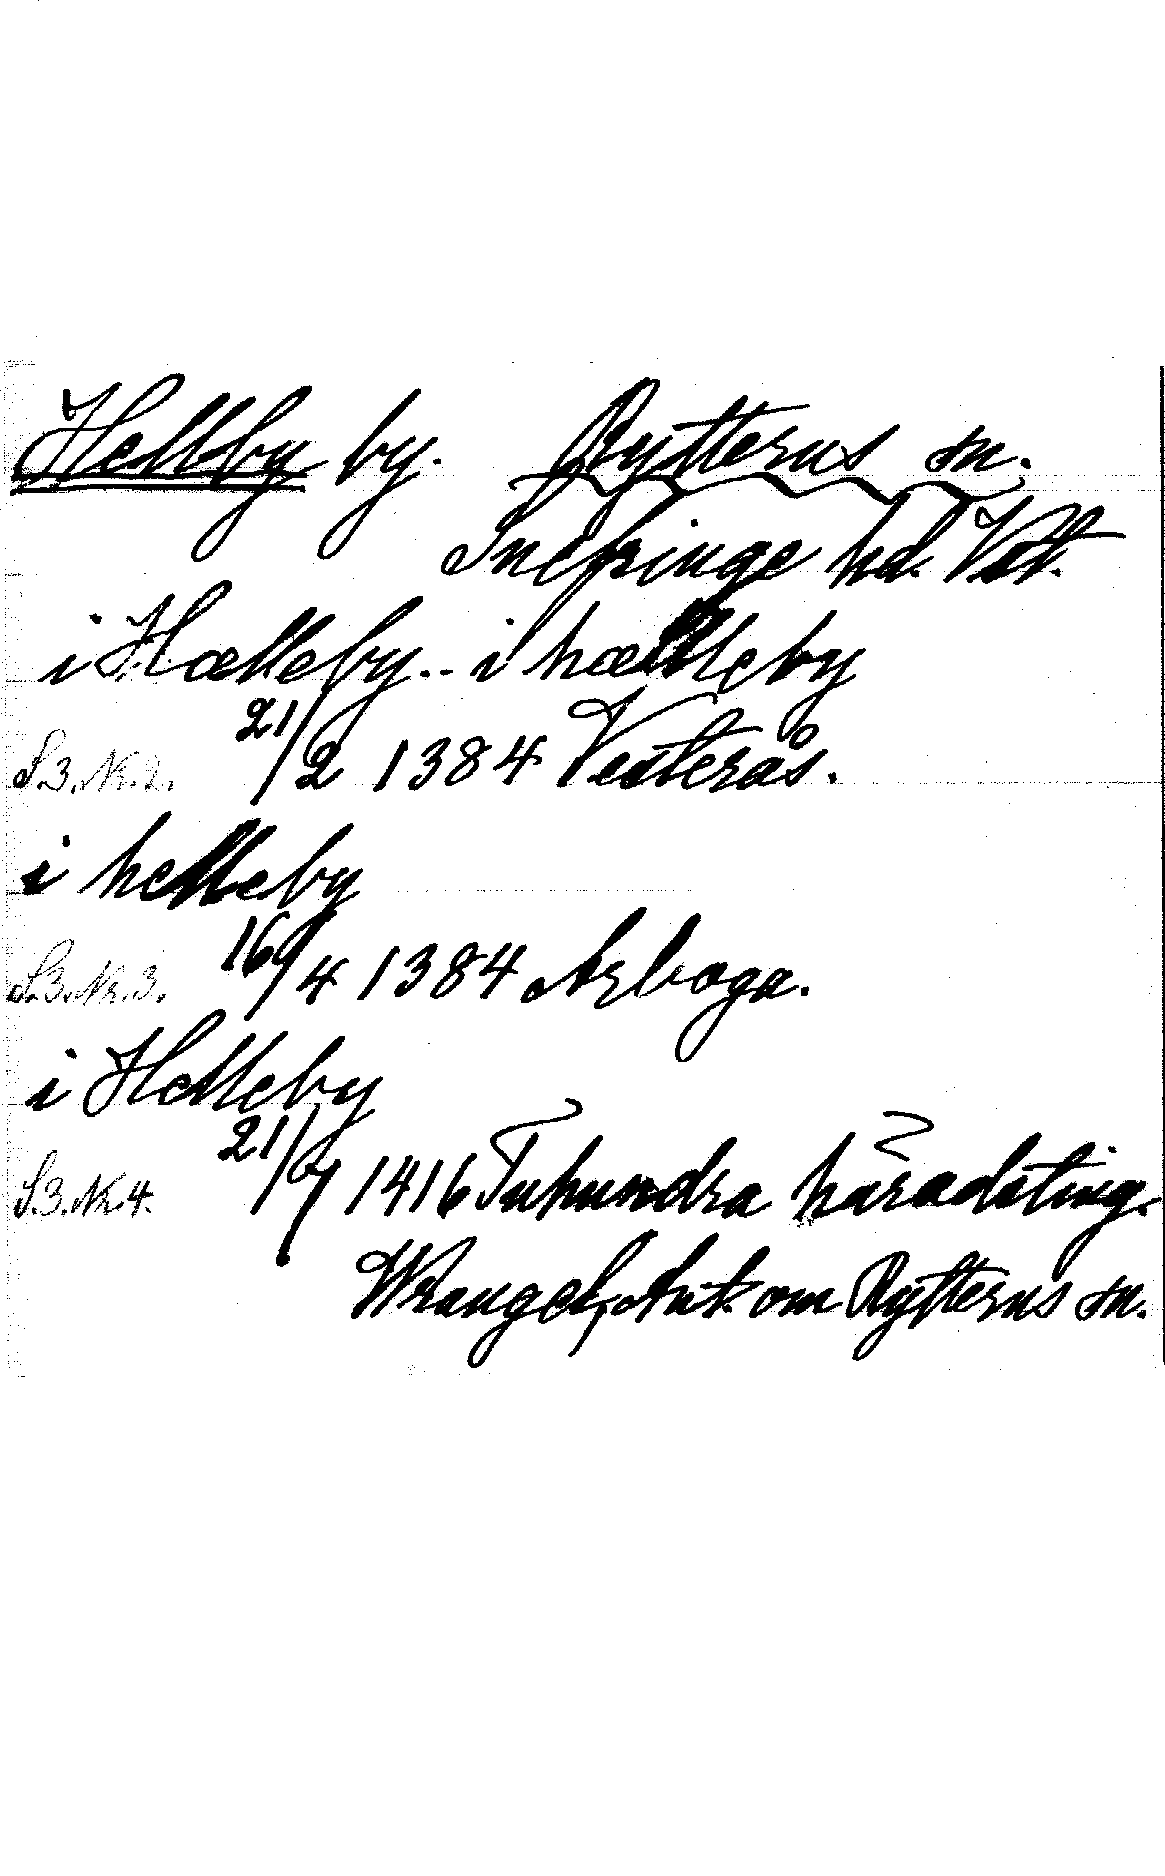 Hellby by. Rytterns sn.
Snefringe hd. Vstm.
i Hælleby.. i hælleby
S.3.Nr.2. 21/2 1384 Vesterås.
i helleby
S.3.Nr.3. 16/4 1384 Arboga.
i Helleby
S.3.Nr.4. 21/9 1416 Tuhundra häradsting.
Wrangel, Ant. om Rytterns sn.